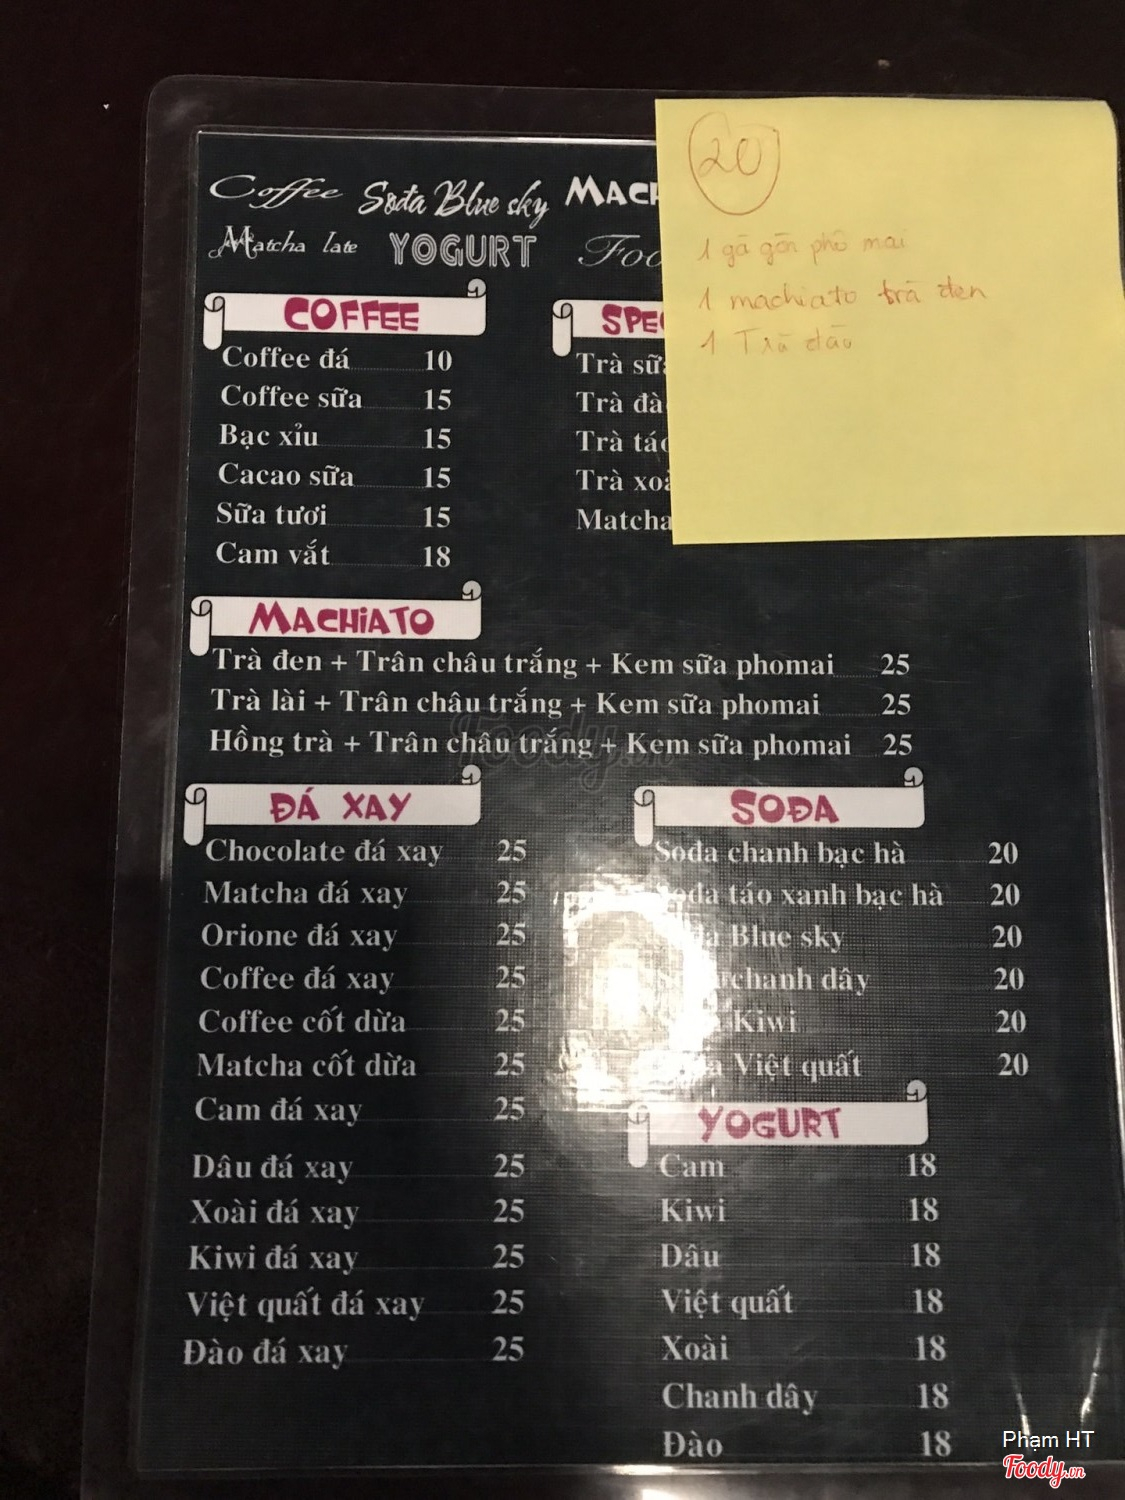 Coffee Sođa Blue sky
Matcha late YOGURT
20
1 gà gòn phô mai
1 machiato trà đen
1 Trà đào
COFFEE
Coffee đá 10
Coffee sữa 15
Bạc xỉu 15
Cacao sữa 15
Sữa tươi 15
Cam vắt 18
Trà
Trà
Trà
Trà
Matcha
MACHIATO
Trà đen + Trân châu trắng + Kem sữa phomai 25
Trà lài + Trân châu trắng + Kem sữa phomai 25
Hồng trà + Trân châu trắng + Kem sữa phomai 25
ĐÁ XAY
Chocolate đá xay 25
Matcha đá xay 25
Orione đá xay 25
Coffee đá xay 25
Coffee cốt dừa 25
Matcha cốt dừa 25
Cam đá xay 25
Dâu đá xay 25
Xoài đá xay 25
Kiwi đá xay 25
Việt quất đá xay 25
Đào đá xay 25
SOĐA
Sođa chanh bạc hà 20
táo xanh bạc hà 20
Blue sky 20
chanh dây 20
Kiwi 20
Việt quất 20
YOGURT
Cam 18
Kiwi 18
Dâu 18
Việt quất 18
Xoài 18
Chanh dây 18
Đào 18
Foody.vn
Phạm HT
Foody.vn